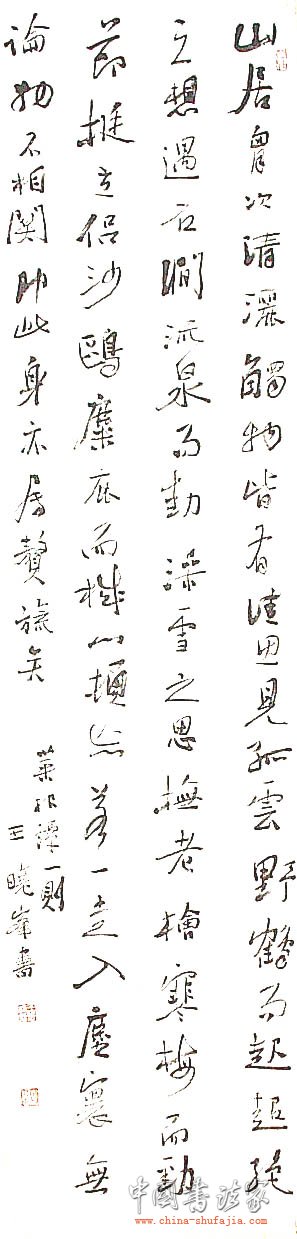 山居胷次清灑觸物皆有佳思見孤雲野鶴而起超絕
之想遇石澗流泉而動澡雪之思撫老檜寒梅而勁
節挺立侣沙鷗麋鹿而機心頓忘若一走入塵寰無
論物不相関即此身亦属贅旒矣
菜根譚一則
王曉峯書
中國書法家
www.china-shufajia.com